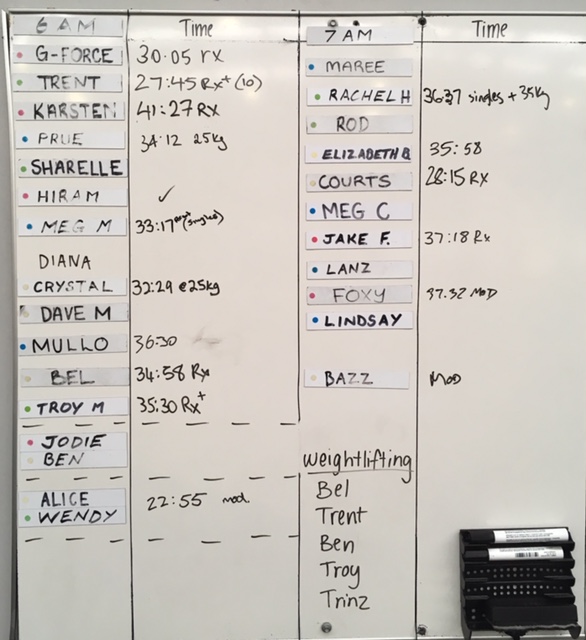 6 AM Time
G-FORCE 30.05 rx
TRENT 27:45 Rx+ (10)
KARSTEN 41:27 Rx
PRUE 34:12 25kg
SHARELLE
HIRAM ✓
MEG M 33:17 (singles)
DIANA
CRYSTAL 32:29 @25kg
DAVE M
MULLO 36:30
BEL 34:58 Rx
TROY M 35:30 Rx+
JODIE
BEN
ALICE 22:55 mod.
WENDY
7 AM Time
MAREE
RACHEL H 36:37 singles + 35kg
ROD
ELIZABETH B 35:58
COURTS 28:15 Rx
MEG C
JAKE F. 37:18 Rx
LANZ
FOXY 37.32 MOD
LINDSAY
BAZZ MOD
Weightlifting
Bel
Trent
Ben
Troy
Trinz